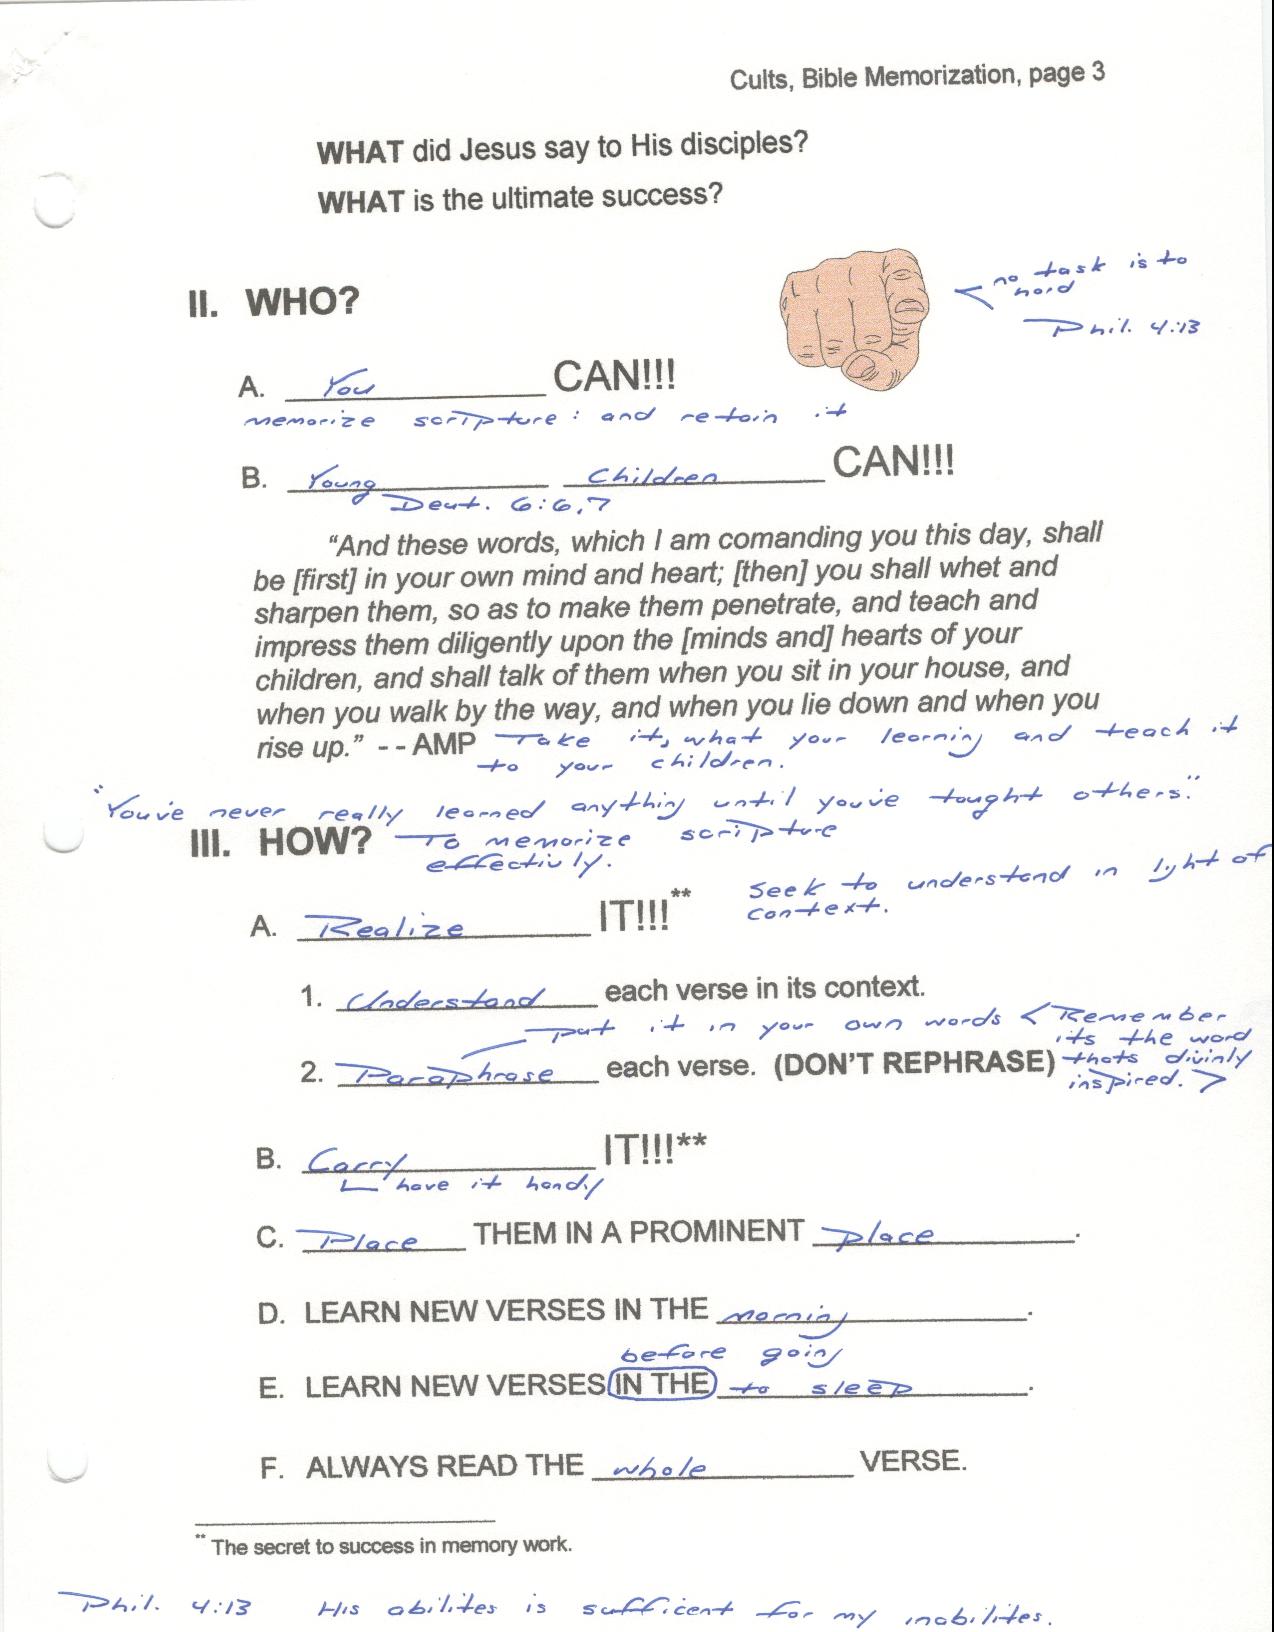 Cults, Bible Memorization, page 3
WHAT did Jesus say to His disciples?
WHAT is the ultimate success?
no task is to
hard
Phil. 4:13
II. WHO?
A. You CAN!!!
memorize scripture: and retain it
B. Young Children CAN!!!
Deut. 6:6,7
“And these words, which I am comanding you this day, shall
be [first] in your own mind and heart; [then] you shall whet and
sharpen them, so as to make them penetrate, and teach and
impress them diligently upon the [minds and] hearts of your
children, and shall talk of them when you sit in your house, and
when you walk by the way, and when you lie down and when you
rise up.” -- AMP Take it, what your learning and teach it
to your children.
"You've never really learned anything until you've taught others."
III. HOW? To memorize scripture
effectivly.
Seek to understand in light of
context.
A. Realize IT!!!**
1. Understand each verse in its context.
put it in your own words < Remember
its the word
2. Paraphrase each verse. (DON'T REPHRASE) thats divinly
inspired. >
B. Carry IT!!!**
have it handy
C. Place THEM IN A PROMINENT place.
D. LEARN NEW VERSES IN THE morning.
before going
E. LEARN NEW VERSES IN THE to sleep.
F. ALWAYS READ THE whole VERSE.
** The secret to success in memory work.
Phil. 4:13 His abilites is sufficent for my inabilites.